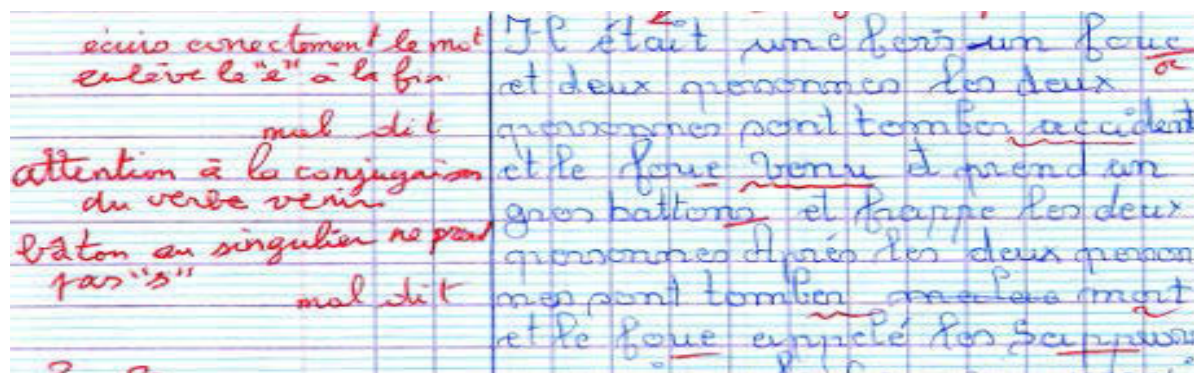 écris correctement le mot
enlève le "e" à la fin
mal dit
attention à la conjugaison
du verbe venir
bâton au singulier ne prend
pas "s"
mal dit
Il était une fois un foue
et deux personnes les deux
personnes sont tomber accident
et le foue venu il prend un
gros battons et frappe les deux
personnes Après les deux person
nes sont tomber malade mort
et le foue appelé les Sappurs